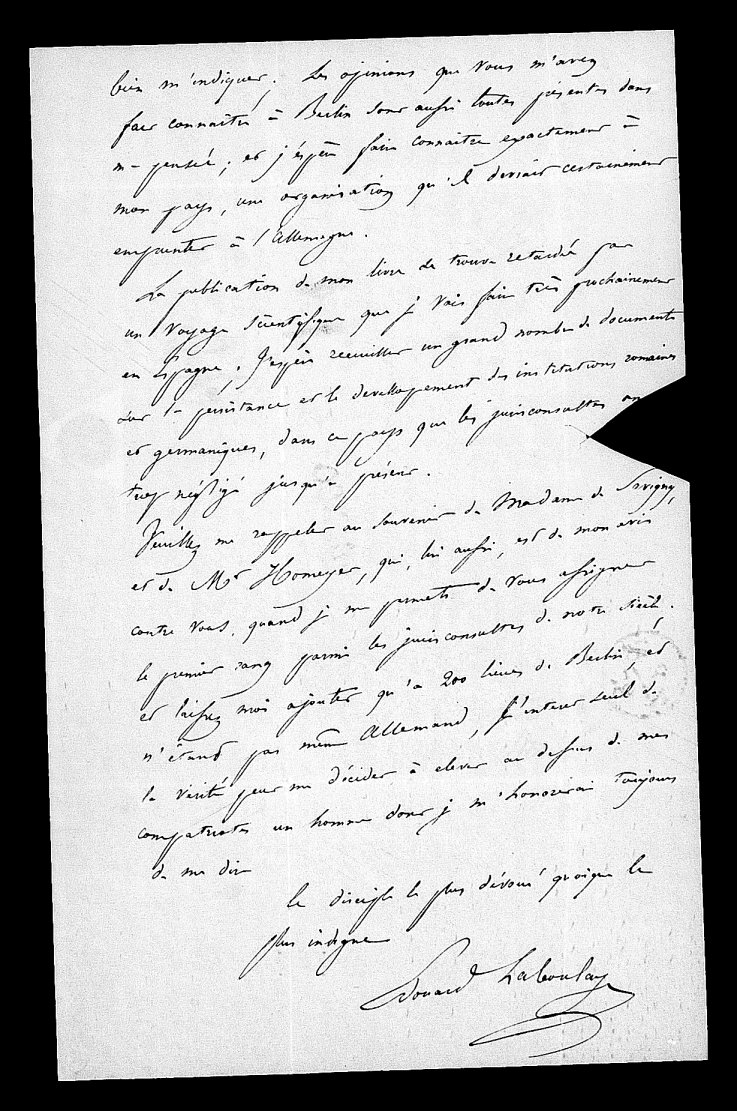 bien m'indiquer. Les opinions que vous m'avez
fait connaître à Berlin sont aussi toutes présentes dans
ma pensée ; et j'espère faire connaitre exactement à
mon pays, une organisation qu'il devrait certainement
emprunter à l'Allemagne.
La publication de mon livre se trouve retardée par
un voyage scientifique que je vais faire très prochainement
en Espagne. J'espère recueillir un grand nombre de documents
sur la persistance et le developpement des institutions romaines
et germaniques, dans ce pays que les jurisconsultes on
trop négligé jusqu'à présent.
Veuillez me rappeler au souvenir de Madame de Savigny,
et de Mr Homeyer, qui, lui aussi, est de mon avis
contre vous, quand je me permets de vous assigner
le premier rang parmi les jurisconsultes de notre siècle.
et laissez moi ajouter qu'à 200 lieues de Berlin, et
n'étant pas même Allemand, l'interet seul de
la vérité peut me décider à elever au dessus de mes
compatriotes un homme dont je m'honorerai toujours
de me dire
le disciple le plus dévoué quoique le
plus indigne
Edouard Laboulaye